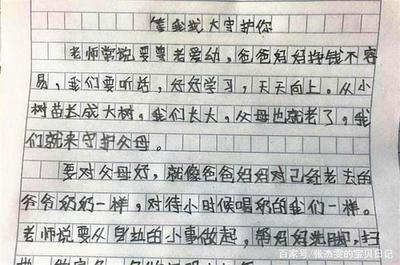 等我长大守护你
老师常说要尊老爱幼，爸爸妈妈挣钱不容
易，我们要听话，好好学习，天天向上。从小
树苗长成大树，我们长大，父母也就老了，我
们就来守护父母。
要对父母好，就像爸爸妈妈对己经老去的
爷爷奶奶一样，对待小时候喝奶的我们一样。
老师说要从身边的小事做起，帮妈妈洗脚，扫
百家号/张杰雯的宝贝日记